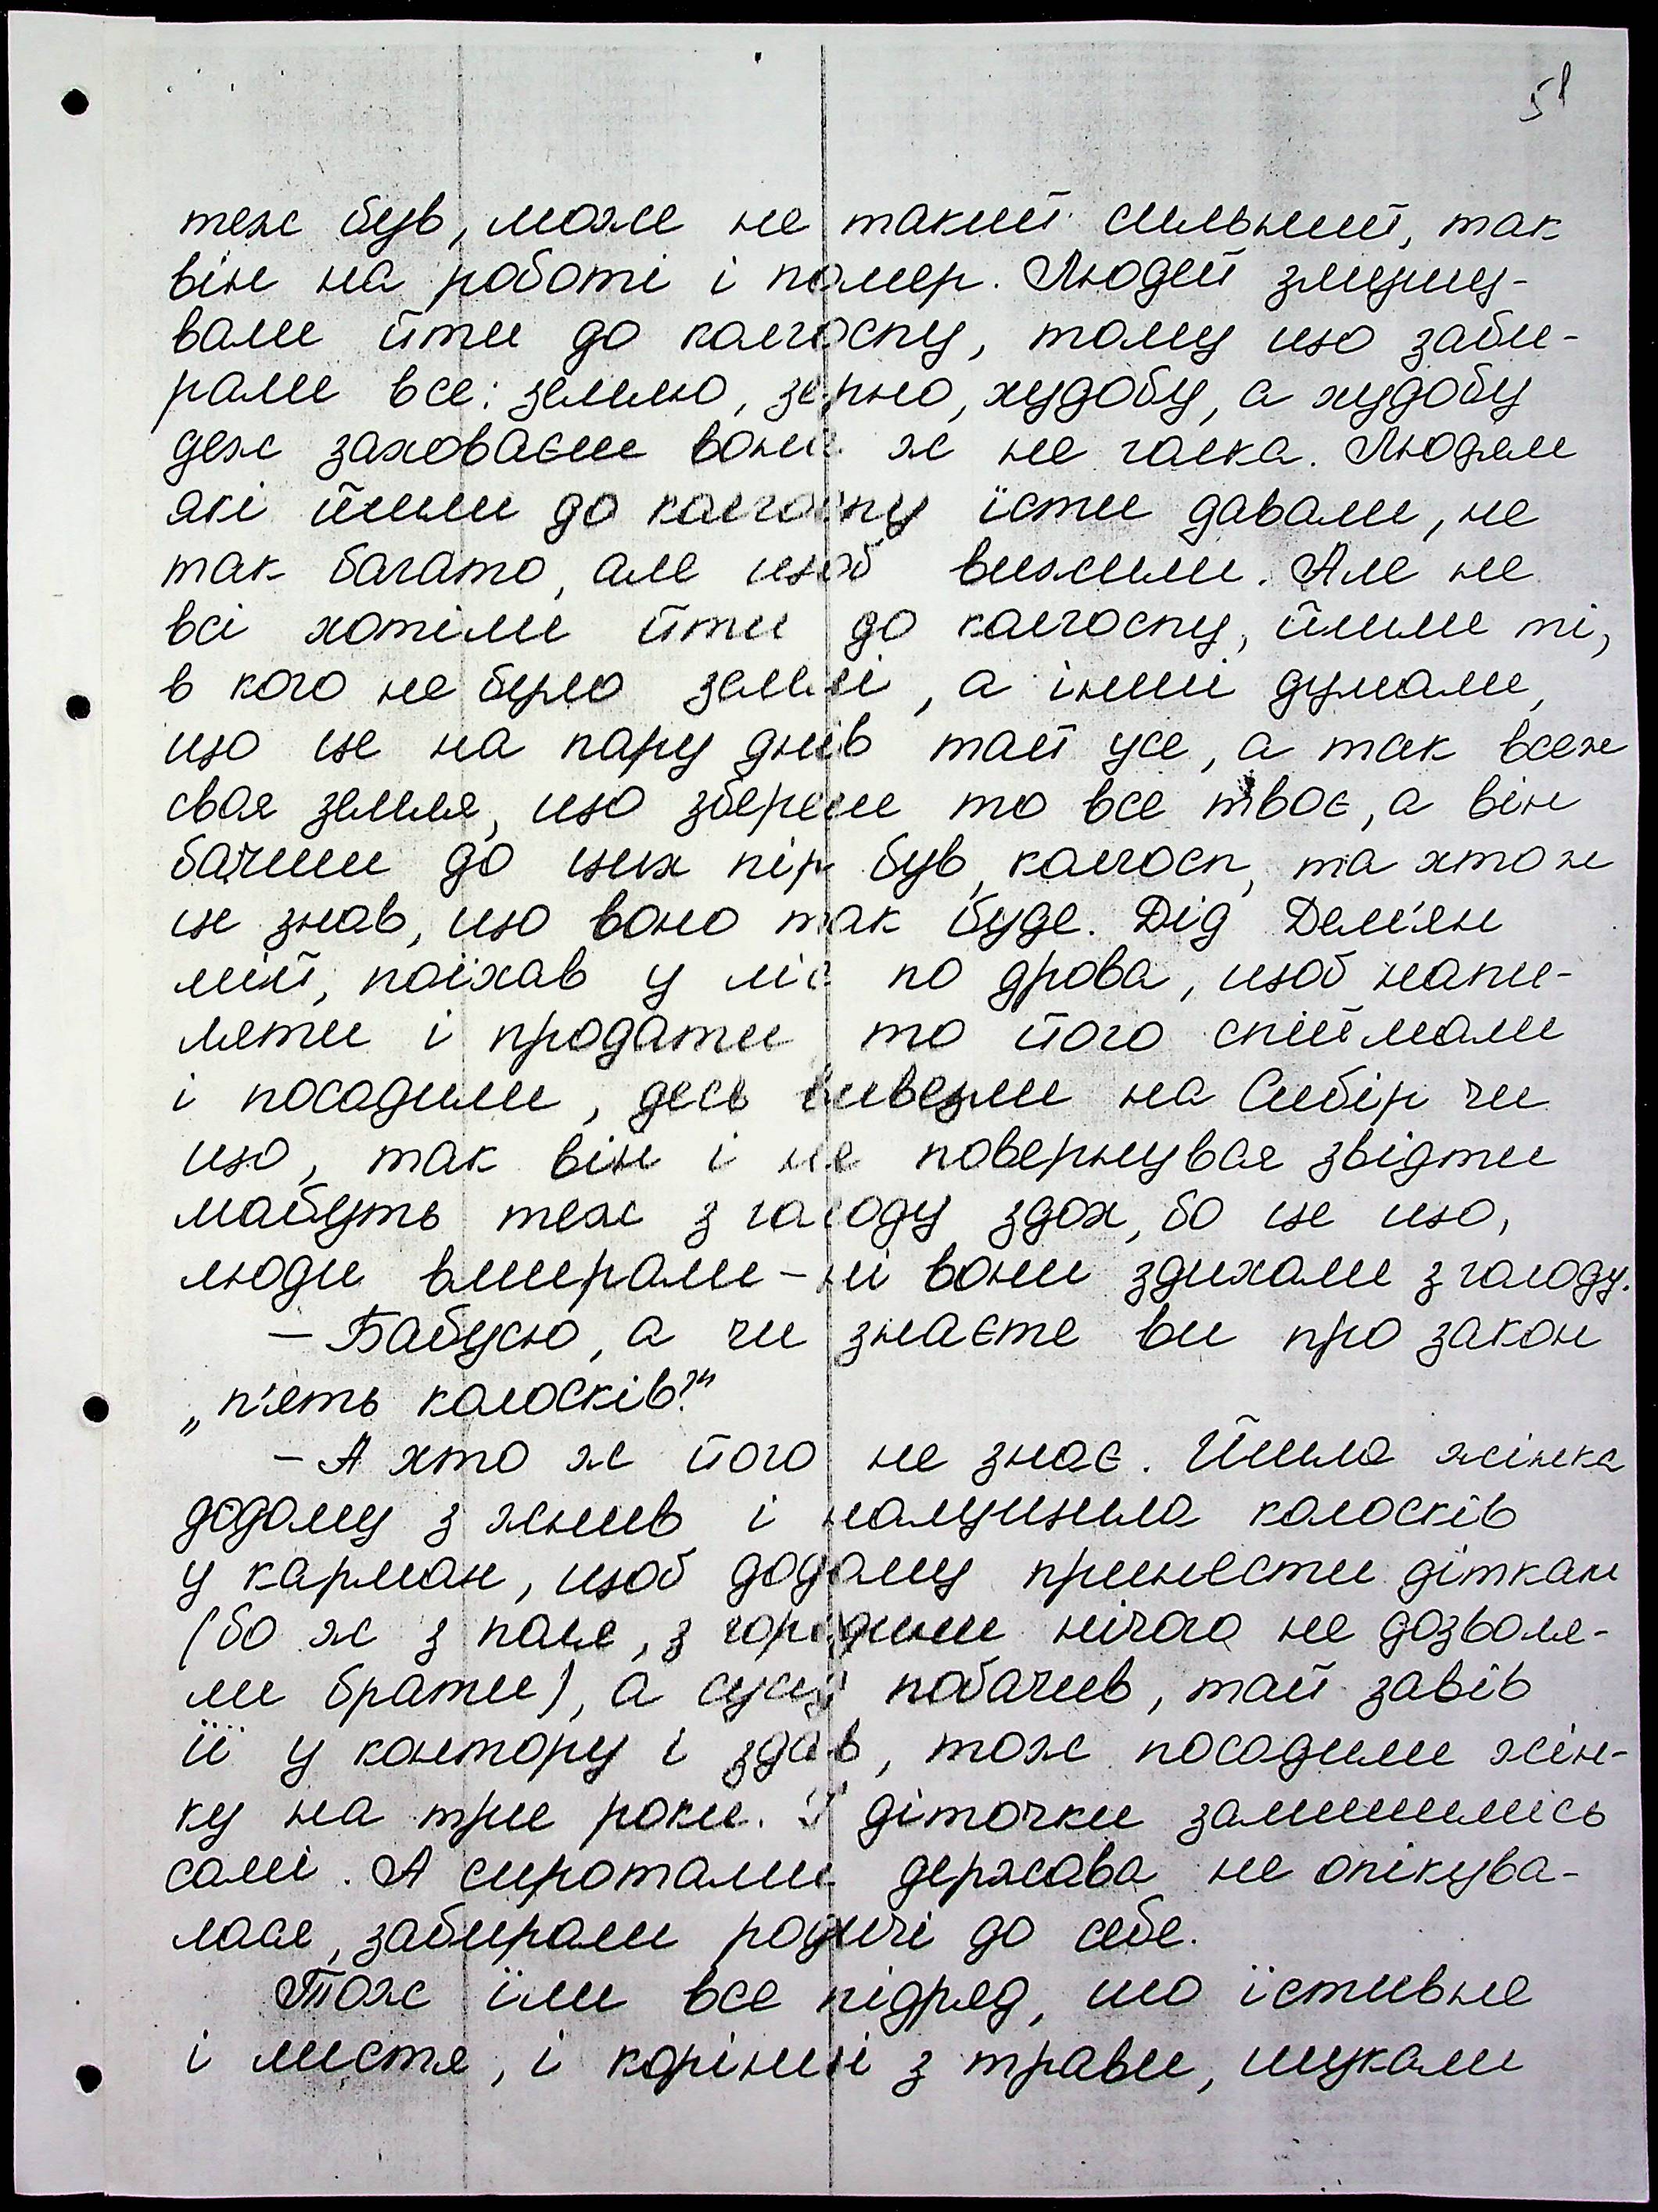 51
теж був, може не такий сильний, так
він на роботі і помер. Людей змушу-
вали йти до колгоспу, тому що заби-
рали все: землю, зерно, худобу, а худобу
деж заховаєш вони ж не голка. Людям
які йшли до колгоспу їсти давали, не
так багато, але щоб вижили. Але не
всі хотіли йти до колгоспу, йшли ті,
в кого не було землі, а інші думали,
що це на пару днів тай усе, а так всеж
своя земля, що збереш то все твоє, а він
бачиш до цих пір був колгосп, та хтож
це знав, що воно так буде. Дід Дем'ян
мій, поїхав у ліс по дрова, щоб напи-
ляти і продати то його спіймали
і посадили, десь вивезли на Сибір чи
що, так він і не повернувся звідти
мабуть теж з голоду здох, бо це що,
люди вмирали - ні вони здихали з голоду.
- Бабусю, а чи знаєте ви про закон
„п'ять колосків?"
- А хто ж його не знає. Йшла жінка
додому з жнив і налущила колосків
у карман, щоб додому принести діткам
(бо ж з поля, з городини нічого не дозволя-
ли брати), а сусід побачив, тай завів
її у контору і здав, тож посадили жін-
ку на три роки. І діточки залишились
самі. А сиротами держава не опікува-
лася, забирали родичі до себе.
Тож їли все підряд, що їстивне
і листя, і коріння з трави, шукали